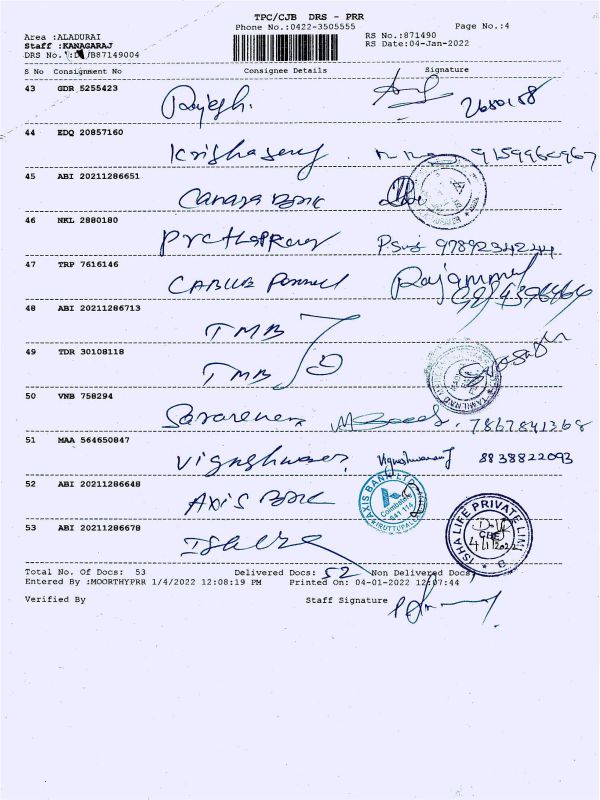 TPC/CJB DRS - PRR
Phone No.:0422-3505555 Page No.:4
Area :ALADURAI RS No.:871490
Staff :KANAGARAJ RS Date:04-Jan-2022
DRS No. /B87149004
S No Consignment No Consignee Details Signature
43 GDR 5255423
Rajesh.
44 EDQ 20857160
45 ABI 20211286651
Canara Bank
46 NKL 2880180
9789234244
47 TRP 7616146
Rajammal
48 ABI 20211286713
TMB
49 TDR 30108118
TMB
TAMILNAD
50 VNB 758294
7867841368
51 MAA 564650847
Vigneshwaran Vigneshwaran 8838822093
52 ABI 20211286648
Axis Bank
AXIS BANK LTD
Coimbatore
641 114
IRUTTUPALLAM
53 ABI 20211286678
Isha
ISHA LIFE PRIVATE LIMI
CBE
4/1/2022
Total No. Of Docs: 53 Delivered Docs: 52 Non Delivered Docs:
Entered By :MOORTHYPRR 1/4/2022 12:08:19 PM Printed On: 04-01-2022 12:07:44
Verified By Staff Signature